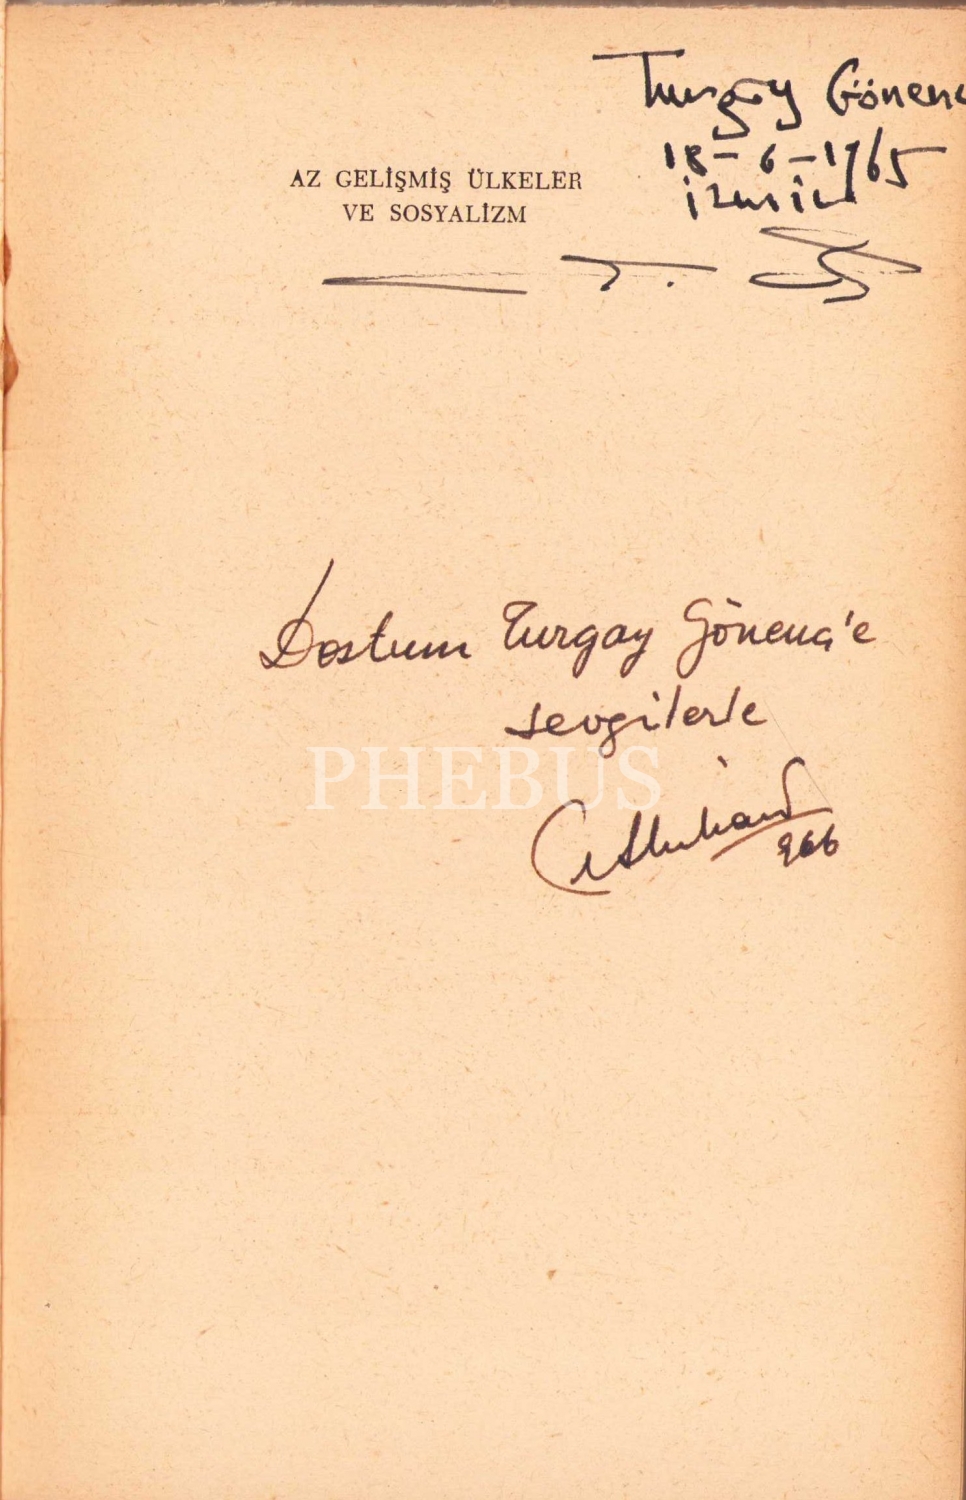 Turgay Gönenç
18-6-1965
izmir
AZ GELİŞMİŞ ÜLKELER
VE SOSYALİZM
Dostum Turgay Gönenç'e
sevgilerle
PHEBUS
966